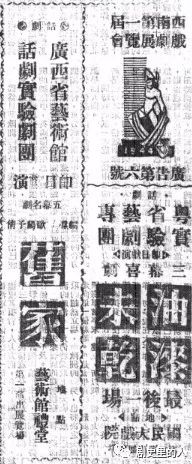 西南第一屆
戲劇展覽會
廣告第六號
話劇
粵省藝專
實驗劇團
三幕喜劇
油漆
未乾
最後一場
國民大戲院
話劇
廣西省藝術館
話劇實驗劇團
五幕名劇
歐陽予倩
舊家
地點
藝術館禮堂